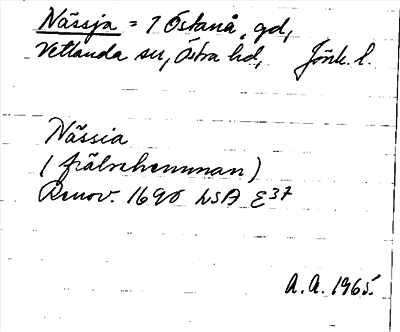 Nässja = 1 Östanå, gd,
Vetlanda sn, Östra hd, Jönk. l.
Nässia
(frälsehemman)
Renov. 1690 LSA E37
A.A. 1965.